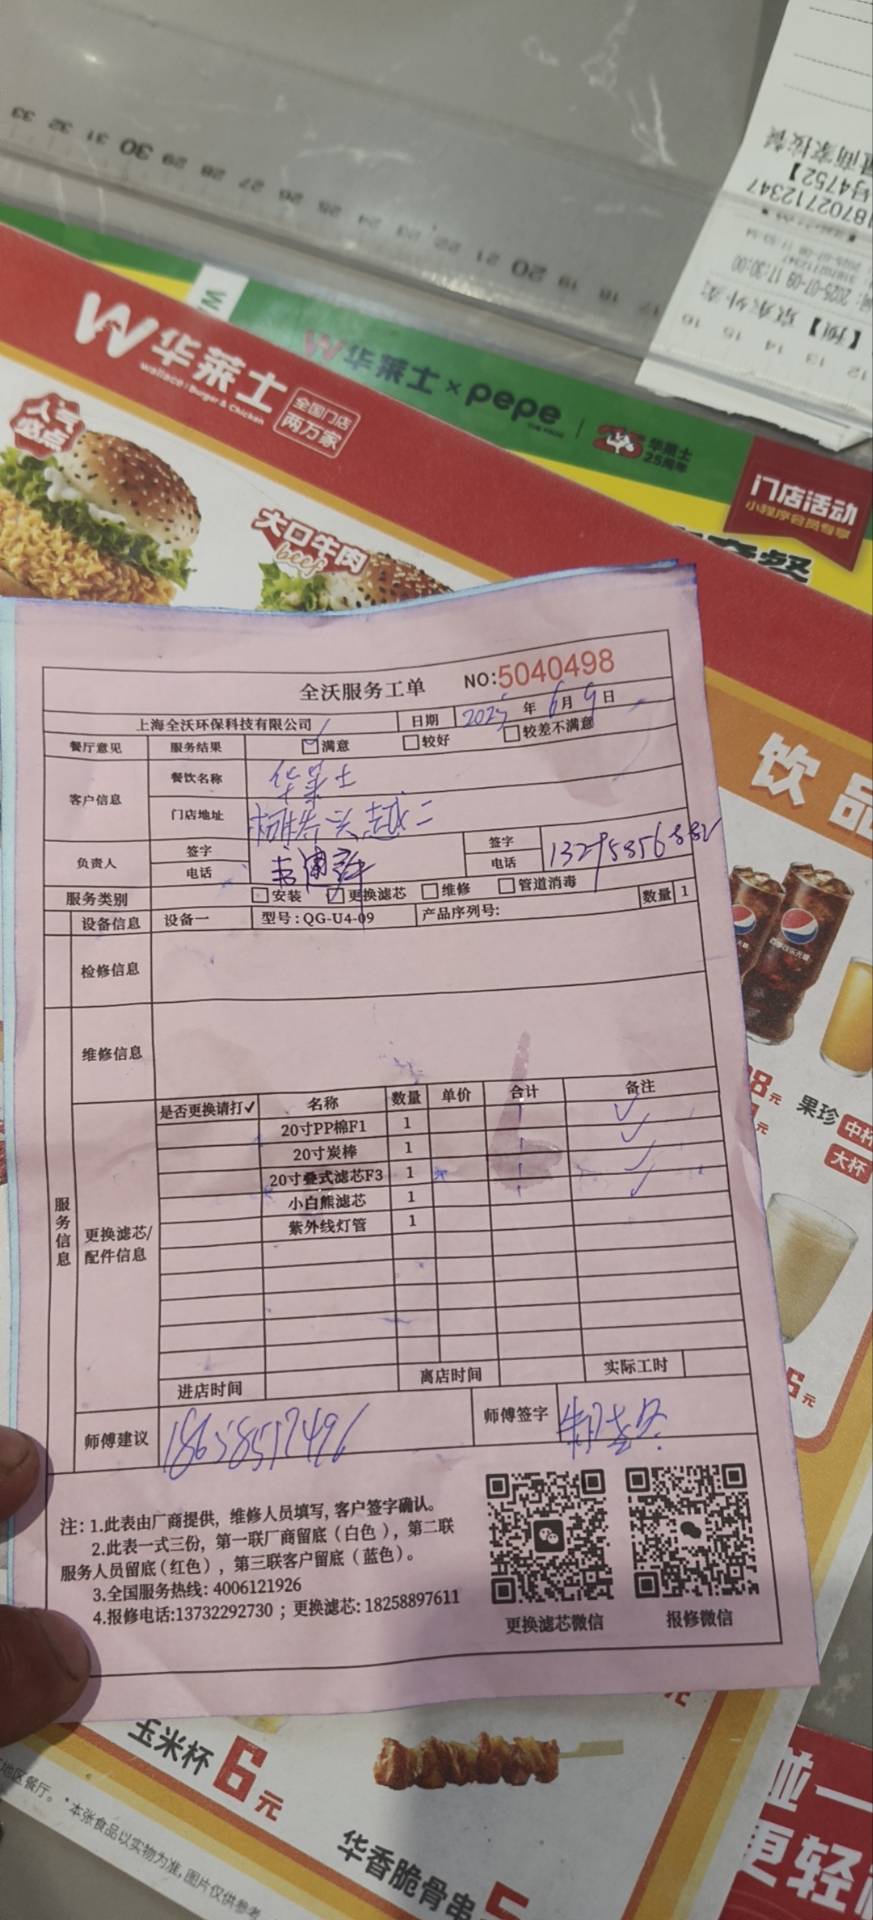 33 32 31 30 29 28 27 26 25 24 23 22 21 20 19 18 17 16 15 14 13 12
商家接餐
号4752】
18702712347
2025-07-09 17:30:00
【预】京东外卖
华莱士
wallace: Burger & Chicken
全国门店
两万家
华莱士×pepe
华莱士
25周年
人气
必点
大口牛肉
beef
门店活动
小程序会员专享
套餐
全沃服务工单 NO:5040498
上海全沃环保科技有限公司 日期 2025年6月9日
餐厅意见 服务结果 ☑满意 □较好 □较差不满意
客户信息 餐饮名称 华莱士
门店地址
负责人 签字 签字
电话 电话 13295856882
服务类别 □安装 ☑更换滤芯 □维修 □管道消毒
设备信息 设备一 型号:QG-U4-09 产品序列号: 数量 1
检修信息
维修信息
服务信息
更换滤芯/
配件信息
是否更换请打✓ 名称 数量 单价 合计 备注
20寸PP棉F1 1 ✓
20寸炭棒 1 ✓
20寸叠式滤芯F3 1 ✓
小白熊滤芯 1 ✓
紫外线灯管 1
进店时间 离店时间 实际工时
师傅建议 18658517496 师傅签字
注: 1.此表由厂商提供，维修人员填写, 客户签字确认。
2.此表一式三份，第一联厂商留底（白色），第二联
服务人员留底(红色)，第三联客户留底（蓝色）。
3.全国服务热线: 4006121926
4.报修电话:13732292730 ；更换滤芯: 18258897611
更换滤芯微信
报修微信
饮品
pepsi
果珍
中杯
大杯
元
玉米杯 6元
华香脆骨串
地区餐厅。*本张食品以实物为准,图片仅供参考
更轻